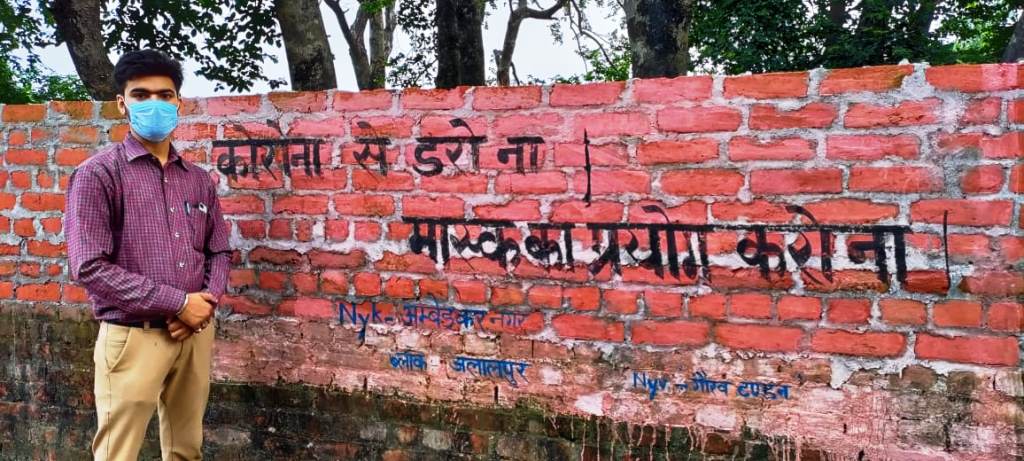 कोरोना से डरो ना।
मास्क का प्रयोग करो ना।
Nyk - अम्बेडकर नगर
ब्लॉक - जलालपुर
Nyv. - गौरव टण्डन